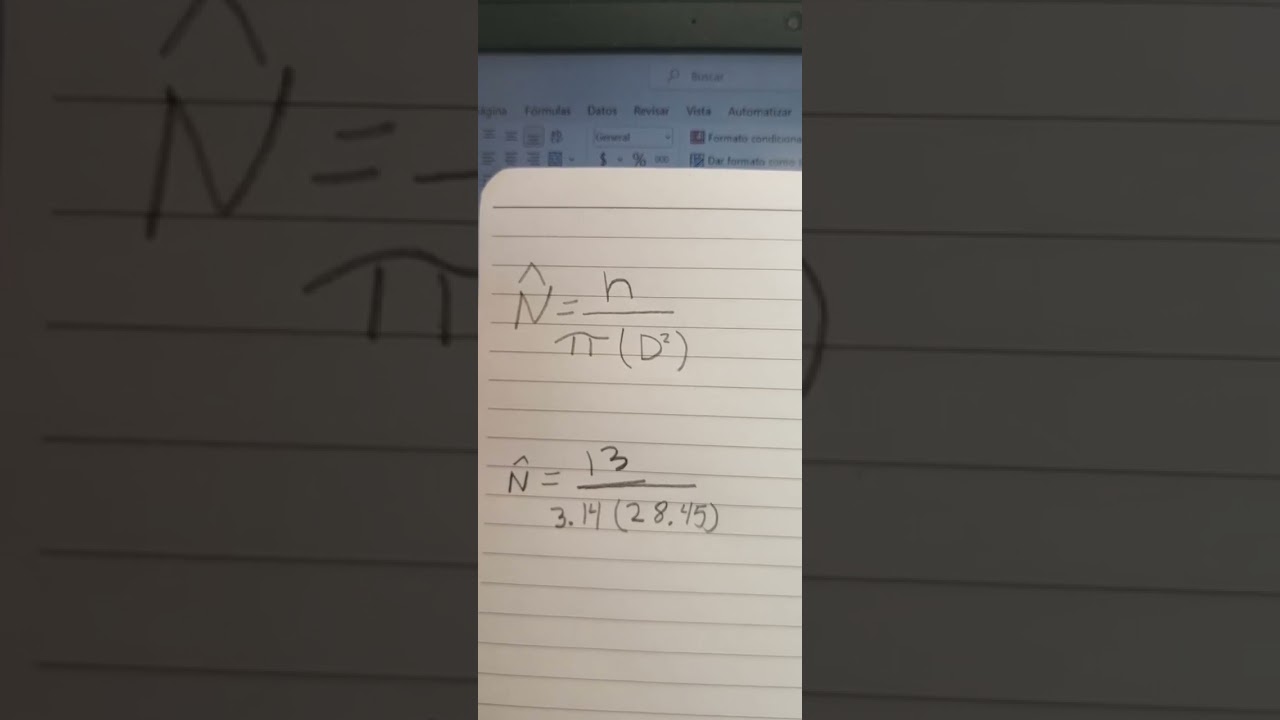 Buscar
ágina Fórmulas Datos Revisar Vista Automatizar
General Formato condiciona
$ % 000 Dar formato como
N̂ = n
π (D²)
N̂ = 13
3.14 (28.45)